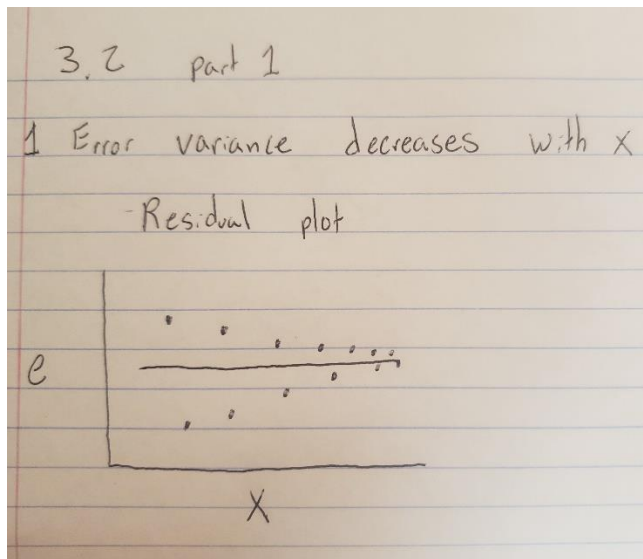 3.2 part 1
1 Error variance decreases with x
- Residual plot
e
X